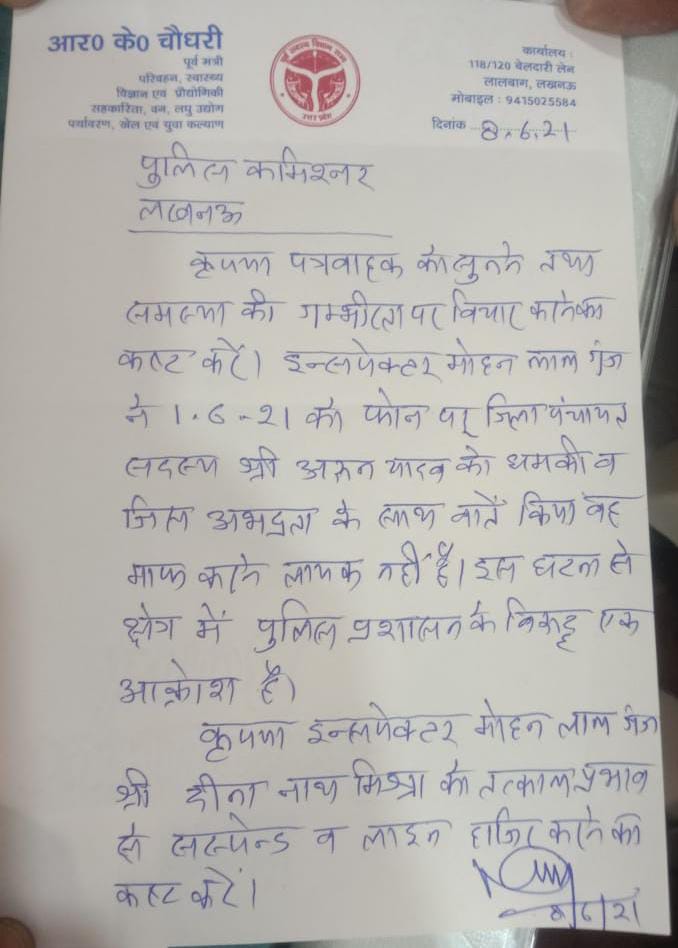 आर0 के0 चौधरी
पूर्व मंत्री
परिवहन, स्वास्थ्य
विज्ञान एवं प्रौद्योगिकी
सहकारिता, वन, लघु उद्योग
पर्यावरण, खेल एवं युवा कल्याण
उत्तर प्रदेश
कार्यालय :
118/120 बेलदारी लेन
लालबाग, लखनऊ
मोबाइल : 9415025584
दिनांक 8.6.21
पुलिस कमिश्नर
लखनऊ
कृपया पत्रवाहक को सुनने तथा
समस्या की गम्भीरता पर विचार करने का
कष्ट करें। इन्सपेक्टर मोहन लाल गंज
ने 1.6.-21 को फोन पर जिला पंचायत
सदस्य श्री अरुन यादव को धमकी व
जिस अभद्रता के साथ बातें किया वह
माफ करने लायक नहीं है। इस घटना से
क्षेत्र में पुलिस प्रशासन के विरुद्ध एक
आक्रोश है।
कृपया इन्सपेक्टर मोहन लाल गंज
श्री दीना नाथ मिश्रा को तत्काल प्रभाव
से सस्पेन्ड व लाइन हाजिर करने की
कष्ट करें।
8/6/21